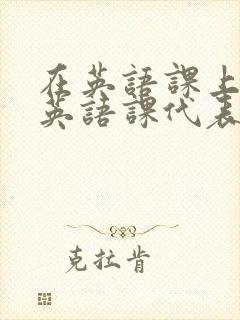 在英語課上
英語課代表
克拉肯